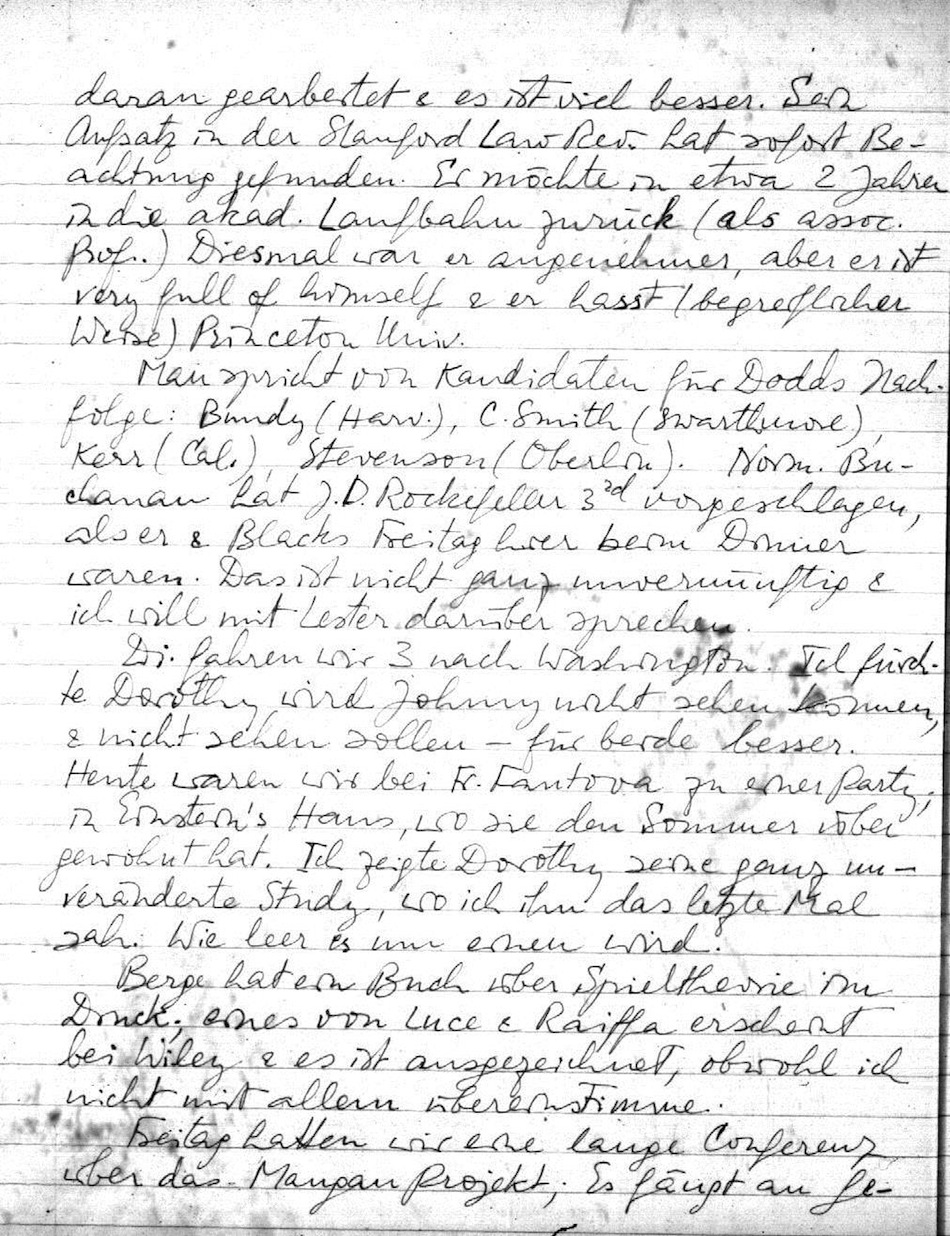 daran gearbeitet & es ist viel besser. Sein
Aufsatz in der Stanford Law Rev. hat sofort Be-
achtung gefunden. Er möchte in etwa 2 Jahren
in die akad. Laufbahn zurück (als assoc.
Prof.) Diesmal war er angenehmer, aber er ist
very full of himself & er hasst (begreiflicher
Weise) Princeton Univ.
Man spricht von Kandidaten für Dodds Nach-
folge: Bundy (Harv.), C. Smith (Swarthmore),
Kerr (Cal.), Stevenson (Oberlin). Norm. Bu-
chanan hat J.D. Rockefeller 3rd vorgeschlagen,
als er & Blacks Freitag hier beim Dinner
waren. Das ist nicht ganz unvernünftig &
ich will mit Lester darüber sprechen.
Di. fahren wir 3 nach Washington. Ich fürch-
te Dorothy wird Johnny nicht sehen können,
& nicht sehen sollen – für beide besser.
Heute waren wir bei Fr. Fantova zu einer Party,
in Einstein's Haus, wo sie den Sommer über
gewohnt hat. Ich zeigte Dorothy seine ganz un-
veränderte Study, wo ich ihn das letzte Mal
sah. Wie leer es um einen wird.
Berge hat ein Buch über Spieltheorie im
Druck; eines von Luce & Raiffa erscheint
bei Wiley & es ist ausgezeichnet, obwohl ich
nicht mit allem übereinstimme.
Freitag hatten wir eine lange Conferenz
über das Mangan Projekt; Es fängt an ge-